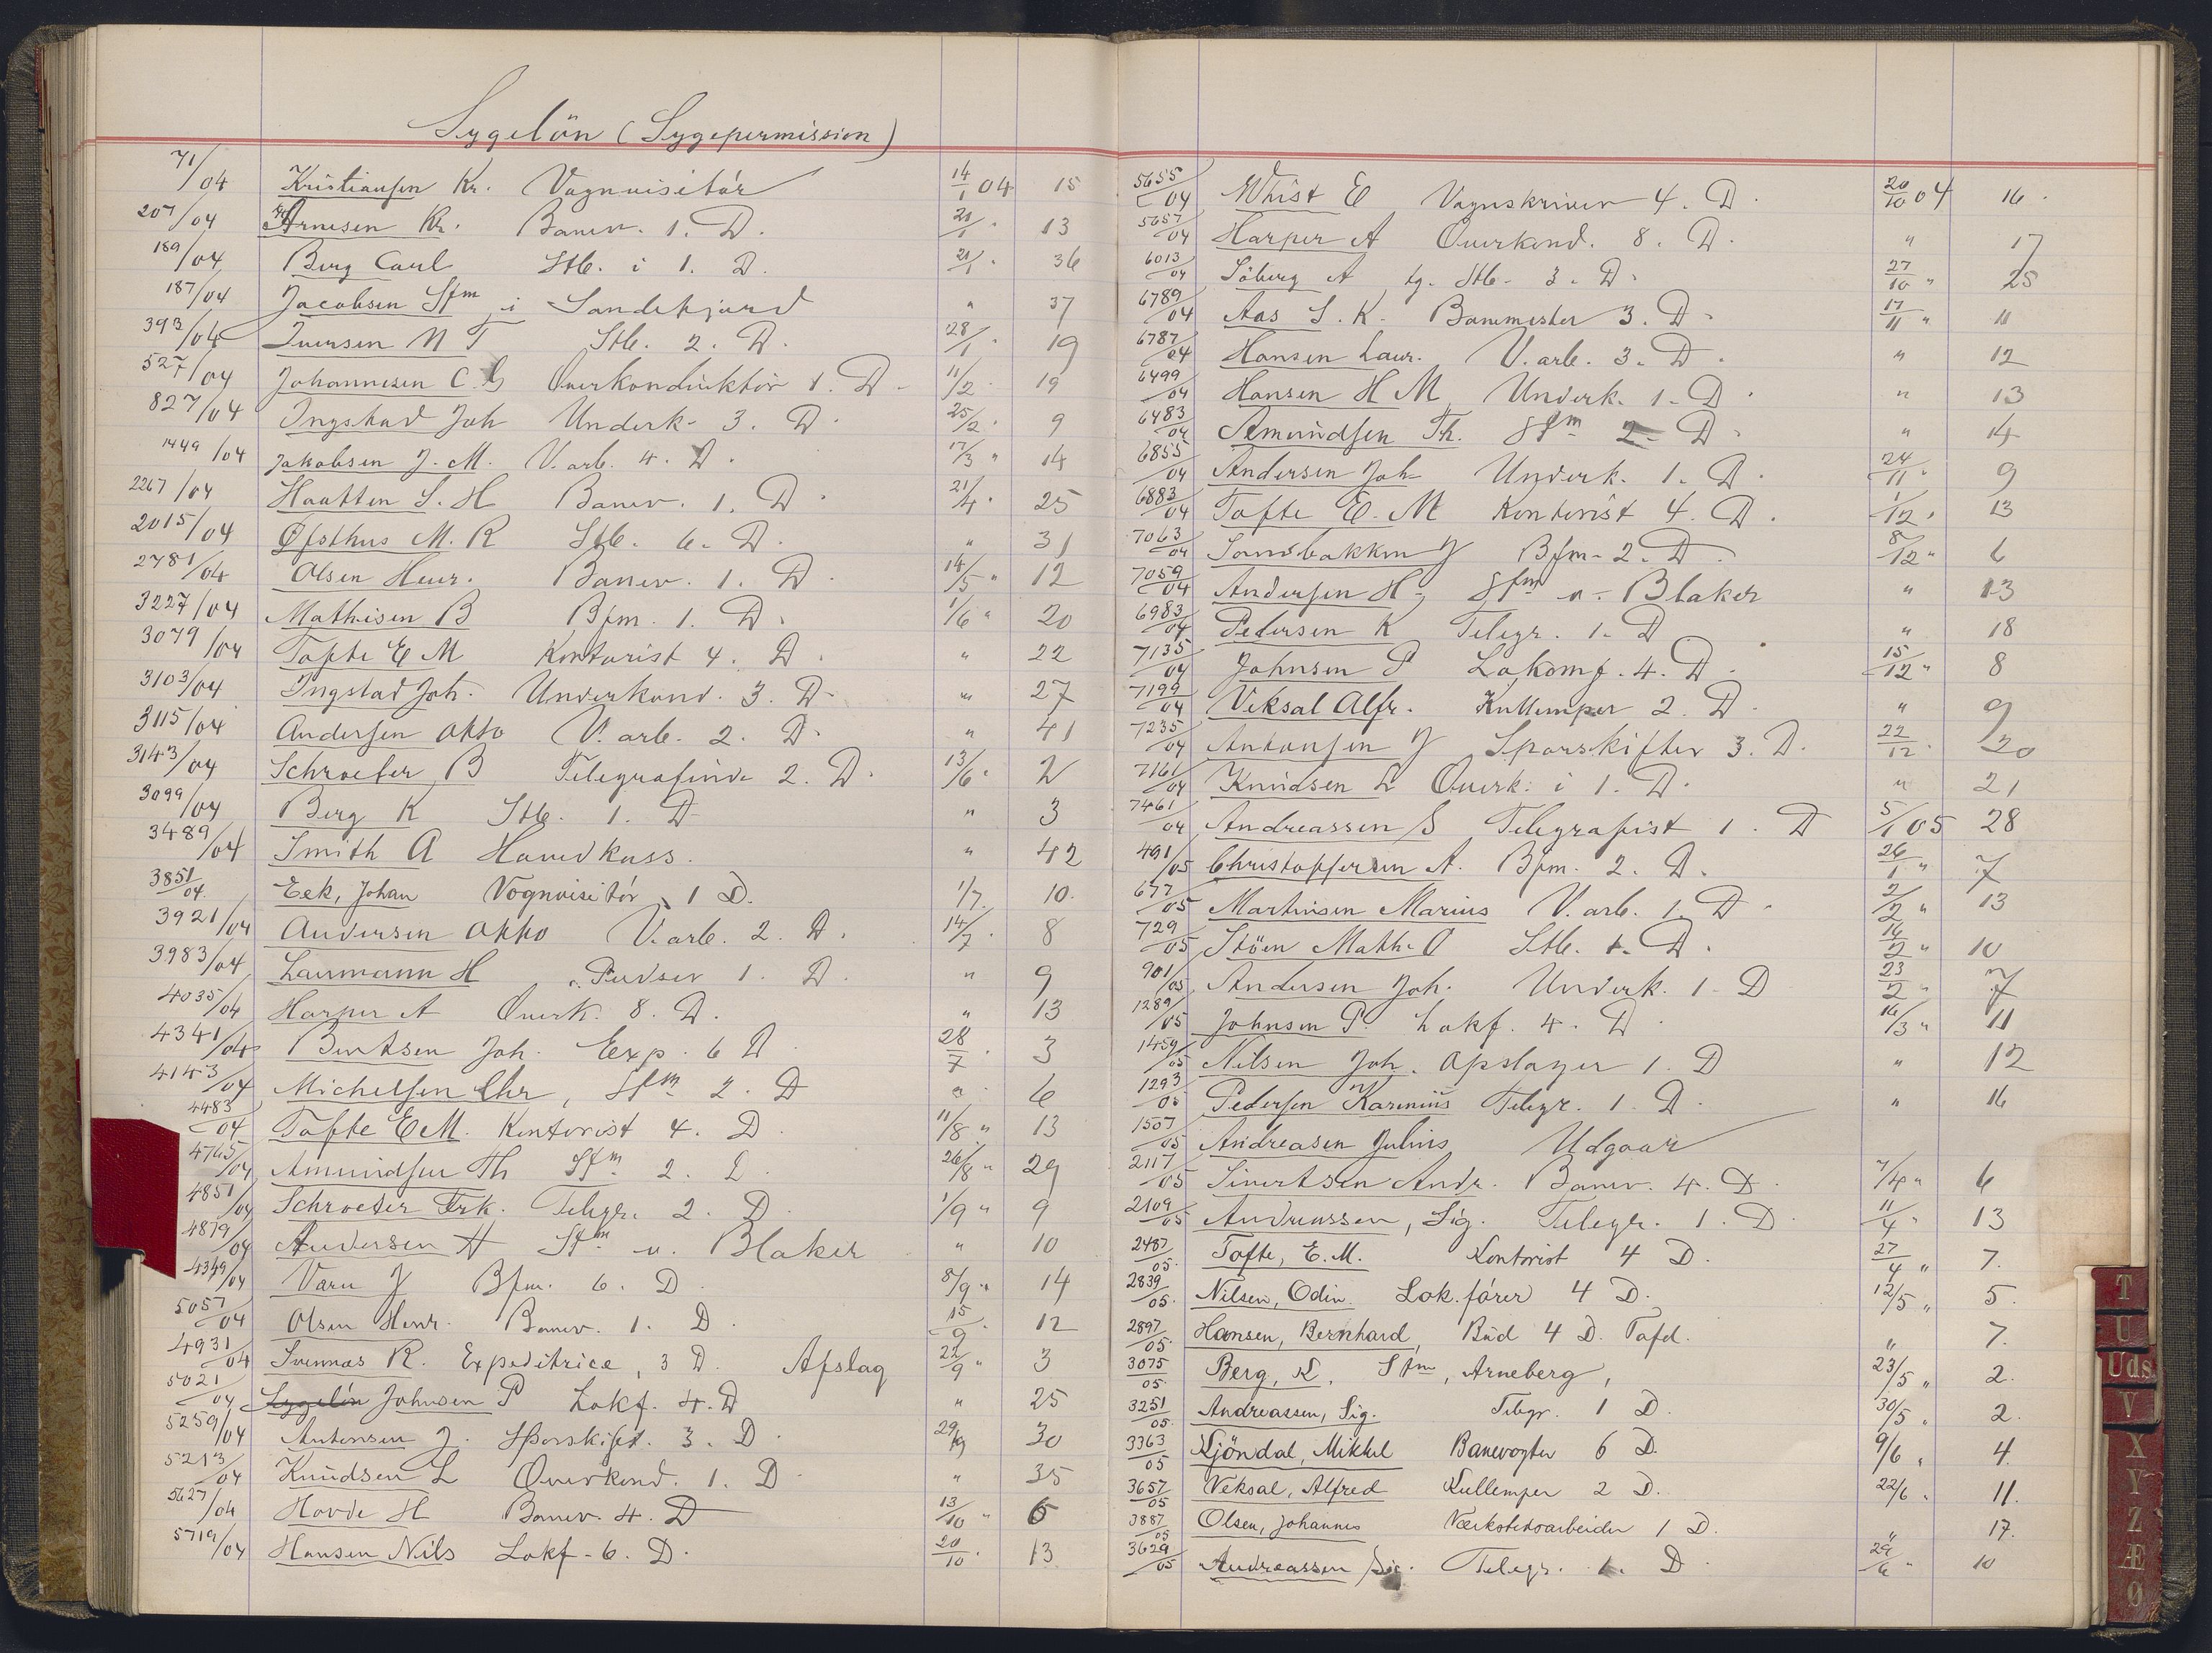 Sygelön (Sygepermission)
71/04 Kristiansen Kr. Vognvisitör 14/1 04 15
207/04 Arnesen Kr. Banev. 1. D. 21/1 " 13
189/04 Berg Carl Stb. i 1. D. 21/1 " 36
187/04 Jacobsen Stm i Sandefjord " 37
393/04 Iversen N T Stb. 2. D. 28/1 " 19
527/04 Johannesen C. Overkonduktör 1. D. 11/2 " 19
827/04 Ingstad Joh Underk. 3. D. 25/2 " 9
1449/04 Jakobsen J. M. V. arb. 4. D. 17/3 " 14
2267/04 Haatten S. H Banev. 1. D. 21/4 " 25
2015/04 Øfsthus M. R Stb. 6. D. " 31
2781/04 Olsen Henr. Banev. 1. D. 14/5 " 12
3227/04 Mathisen B Bfm. 1. D. 1/6 " 20
3079/04 Tofte E M Kontorist 4. D. " 22
3103/04 Ingstad Joh. Underkond. 3. D. " 27
3115/04 Andersen Otto V. arb. 2. D. " 41
3143/04 Schroeter B Telegrafinde 2. D. 13/6 " 2
3099/04 Berg K Stb. 1. D " 3
3489/04 Smith A Hovedkass. " 42
3851/04. Eek, Johan Vognvisitör, 1 D. 1/7. 10.
3921/04 Andersen Otto V. arb. 2. D. 14/7 " 8
3983/04 Laumann H Pudser 1. D. " 9
4035/04 Harper A Overk. 8. D. " 13
4341/04 Berntsen Joh. Exp. 6 D 28/7 " 3
4143/04 Michelsen Chr, Stm 2. D " 6
4483/04 Tofte E M. Kontorist 4. D. 11/8 " 13
4765/04 Amundsen Th Stm 2. D. 26/8 " 29
4851/04 Schroeter Frk. Telegr. 2. D. 1/9 " 9
4879/04 Andersen H Stm v. Blaker " 10
4349/04 Varu J Bfm. 6. D. 8/9 " 14
5057/04 Olsen Henr. Banev. 1. D. 15/9 " 12
4931/04 Svennæs R. Expeditrice, 3 D. Afslag 22/9 " 3
5021/04 Sygelön Johnsen P Lokf. 4. D " 25
5259/04 Antonsen J. Sporskift. 3. D. 29/9 30
5213/04 Knudsen L Overkond. 1. D. " 35
5627/04 Hovde H Banev. 4. D 13/10 " 6
5719/04 Hansen Nils Lokf. 6. D. 20/10 " 13
5655/04 Whist E Vognskriver 4. D. 20/10 04 16.
5657/04 Harper A Overkond. 8. D. " 17
6013/04 Söberg A tg. Stb. 3. D. 27/10 " 25
6789/04 Aas S. K. Banemester 3. D. 17/11 " 11
6787/04 Hansen Laur. V. arb. 3. D. " 12
6499/04 Hansen H M Underk. 1. D. " 13
6483/04 Amundsen Th. Stm 2. D. " 14
6855/04 Andersen Joh Underk. 1. D. 24/11 " 9
6883/04 Tofte E. M Kontorist 4. D. 1/12 " 13
7063/04 Sandbakken J Bfm. 2. D. 8/12 " 6
7059/04 Andersen H. Stm v. Blaker " 13
6983/04 Pedersen K Telegr. 1. D " 18
7135/04 Johnsen P Lokomf. 4. D. 15/12 " 8
7199/04 Veksal Alfr. Kullemper 2. D. " 9
7235/04 Antonsen J Sporskifter 3. D. 22/12 " 20
7161/04 Knudsen L Overk. i 1. D. " 21
7461/04 Andreassen S Telegrafist 1. D 5/1 05 28
491/05 Christoffersen A. Bfm. 2. D. 26/1 " 7
677/05 Martinsen Marius V. arb. 1. D. 2/2 " 13
729/05 Stöen Math. O Stb. 1. D. 16/2 " 10
901/05 Andersen Joh. Underk. 1. D 23/2 " 7
1289/05 Johnsen P. Lokf. 4. D. 16/3 " 11
1459/05 Nilsen Joh. Opslager 1. D " 12
1293/05 Pedersen Karenius Telegr. 1. D. " 16
1507/05 Andreasen Julius Udgaar
2117/05 Sivertsen Andr. Banev. 4. D. 7/4 " 6
2109/05 Andreassen, Sig. Telegr. 1. D. 11/4 " 13
2487/05. Tofte, E. M. Kontorist 4 D. 27/4 " 7.
2839/05. Nilsen, Odin. Lok.förer 4 D. 12/5 " 5.
2897/05. Hansen, Bernhard, Bud 4 D. Tafd. " 7.
3075/05. Berg, K. Stm, Arneberg, 23/5 " 2.
3251/05. Andreassen, Sig. Telegr. 1 D. 30/5 " 2.
3363/05 Kjöndal, Mikkel Banevogter 6 D. 9/6 " 4.
3657/05 Veksal, Alfred Kullemper 2 D. 22/6 " 11.
3887/05 Olsen, Johannes Værkstedsarbeider 1 D. " 17.
3629/05 Andreassen Sig. Telegr. 1. D. 29/6 " 10
T
U
Uds
V
X
Y
Z
Æ
Ø